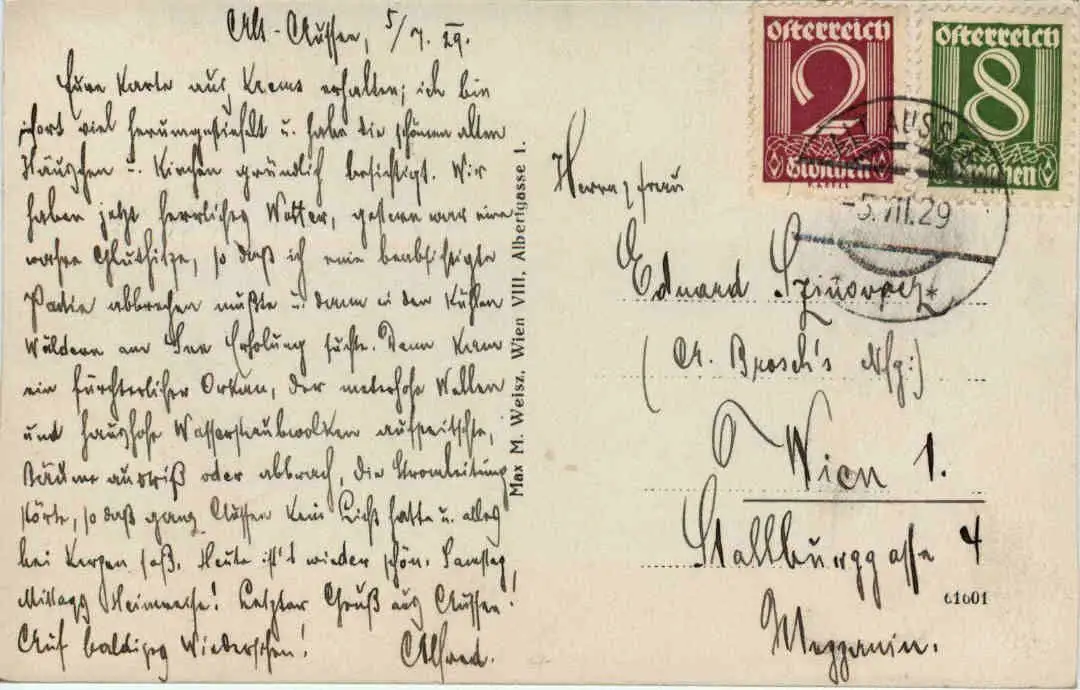 Alt-Aussee, 5/7. 29.
Eure Karte aus Krems erhalten; ich bin
dort viel herumgestiefelt u. habe die schönen alten
Häuschen u. Kirchen gründlich besichtigt. Wir
haben jetzt herrliches Wetter, gestern war eine
wahre Gluthitze, so daß ich eine beabsichtigte
Partie abbrechen mußte u. dann in den kühlen
Wäldern am See Erholung suchte. Dann kam
ein fürchterlicher Orkan, der meterhohe Wellen
und haushohe Wasserstaubwolken aufpeitschte,
Bäume ausriß oder abbrach, die Stromleitung
störte, so daß ganz Aussee kein Licht hatte u. alles
bei Kerzen saß. Heute ist's wieder schön. Samstag,
Mittags Heimreise! Letzter Gruß aus Aussee!
Auf baldiges Wiedersehen! Alfred.
Max M. Weisz, Wien VIII, Albertgasse 1.
Österreich
2
Groschen
Österreich
8
Groschen
ALT AUSSEE
-5.VII.29
*
Eduard
(A. Brosch's Nfg:)
Wien 1.
Stallburggasse 4
61601
Mezzanin.